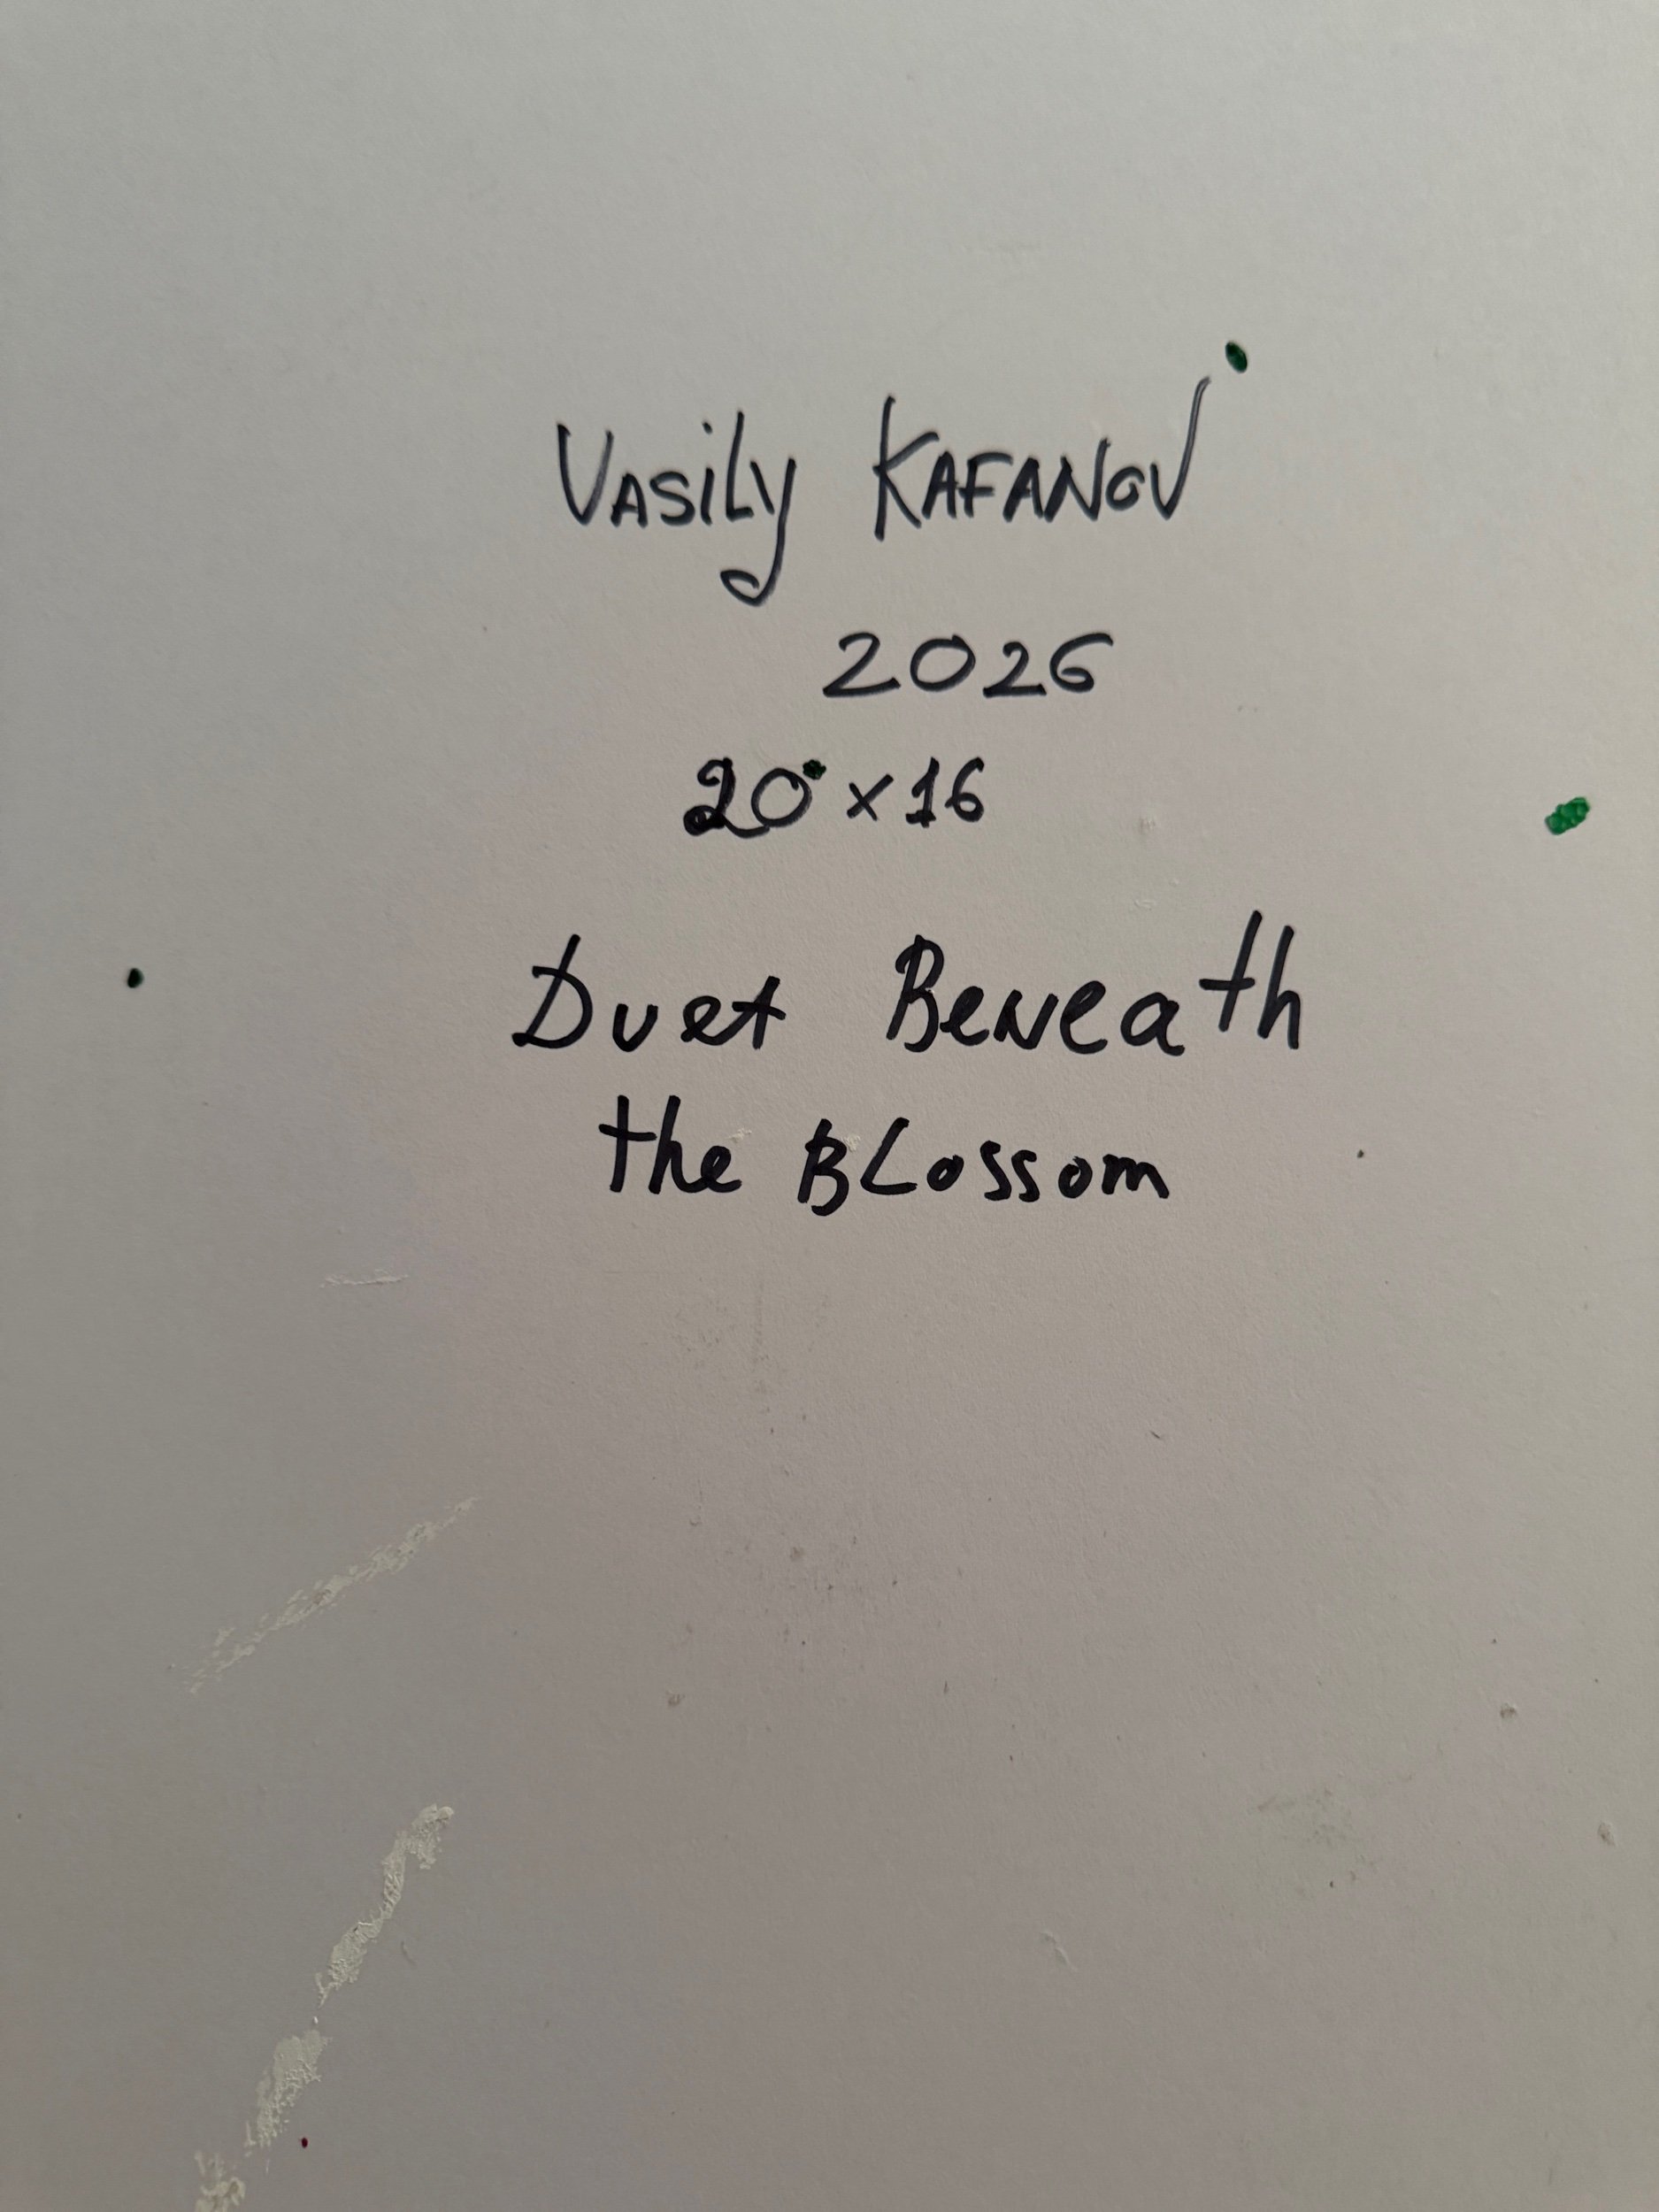 Vasily Kafanov
2026
20 x 16
Duet Beneath
the Blossom